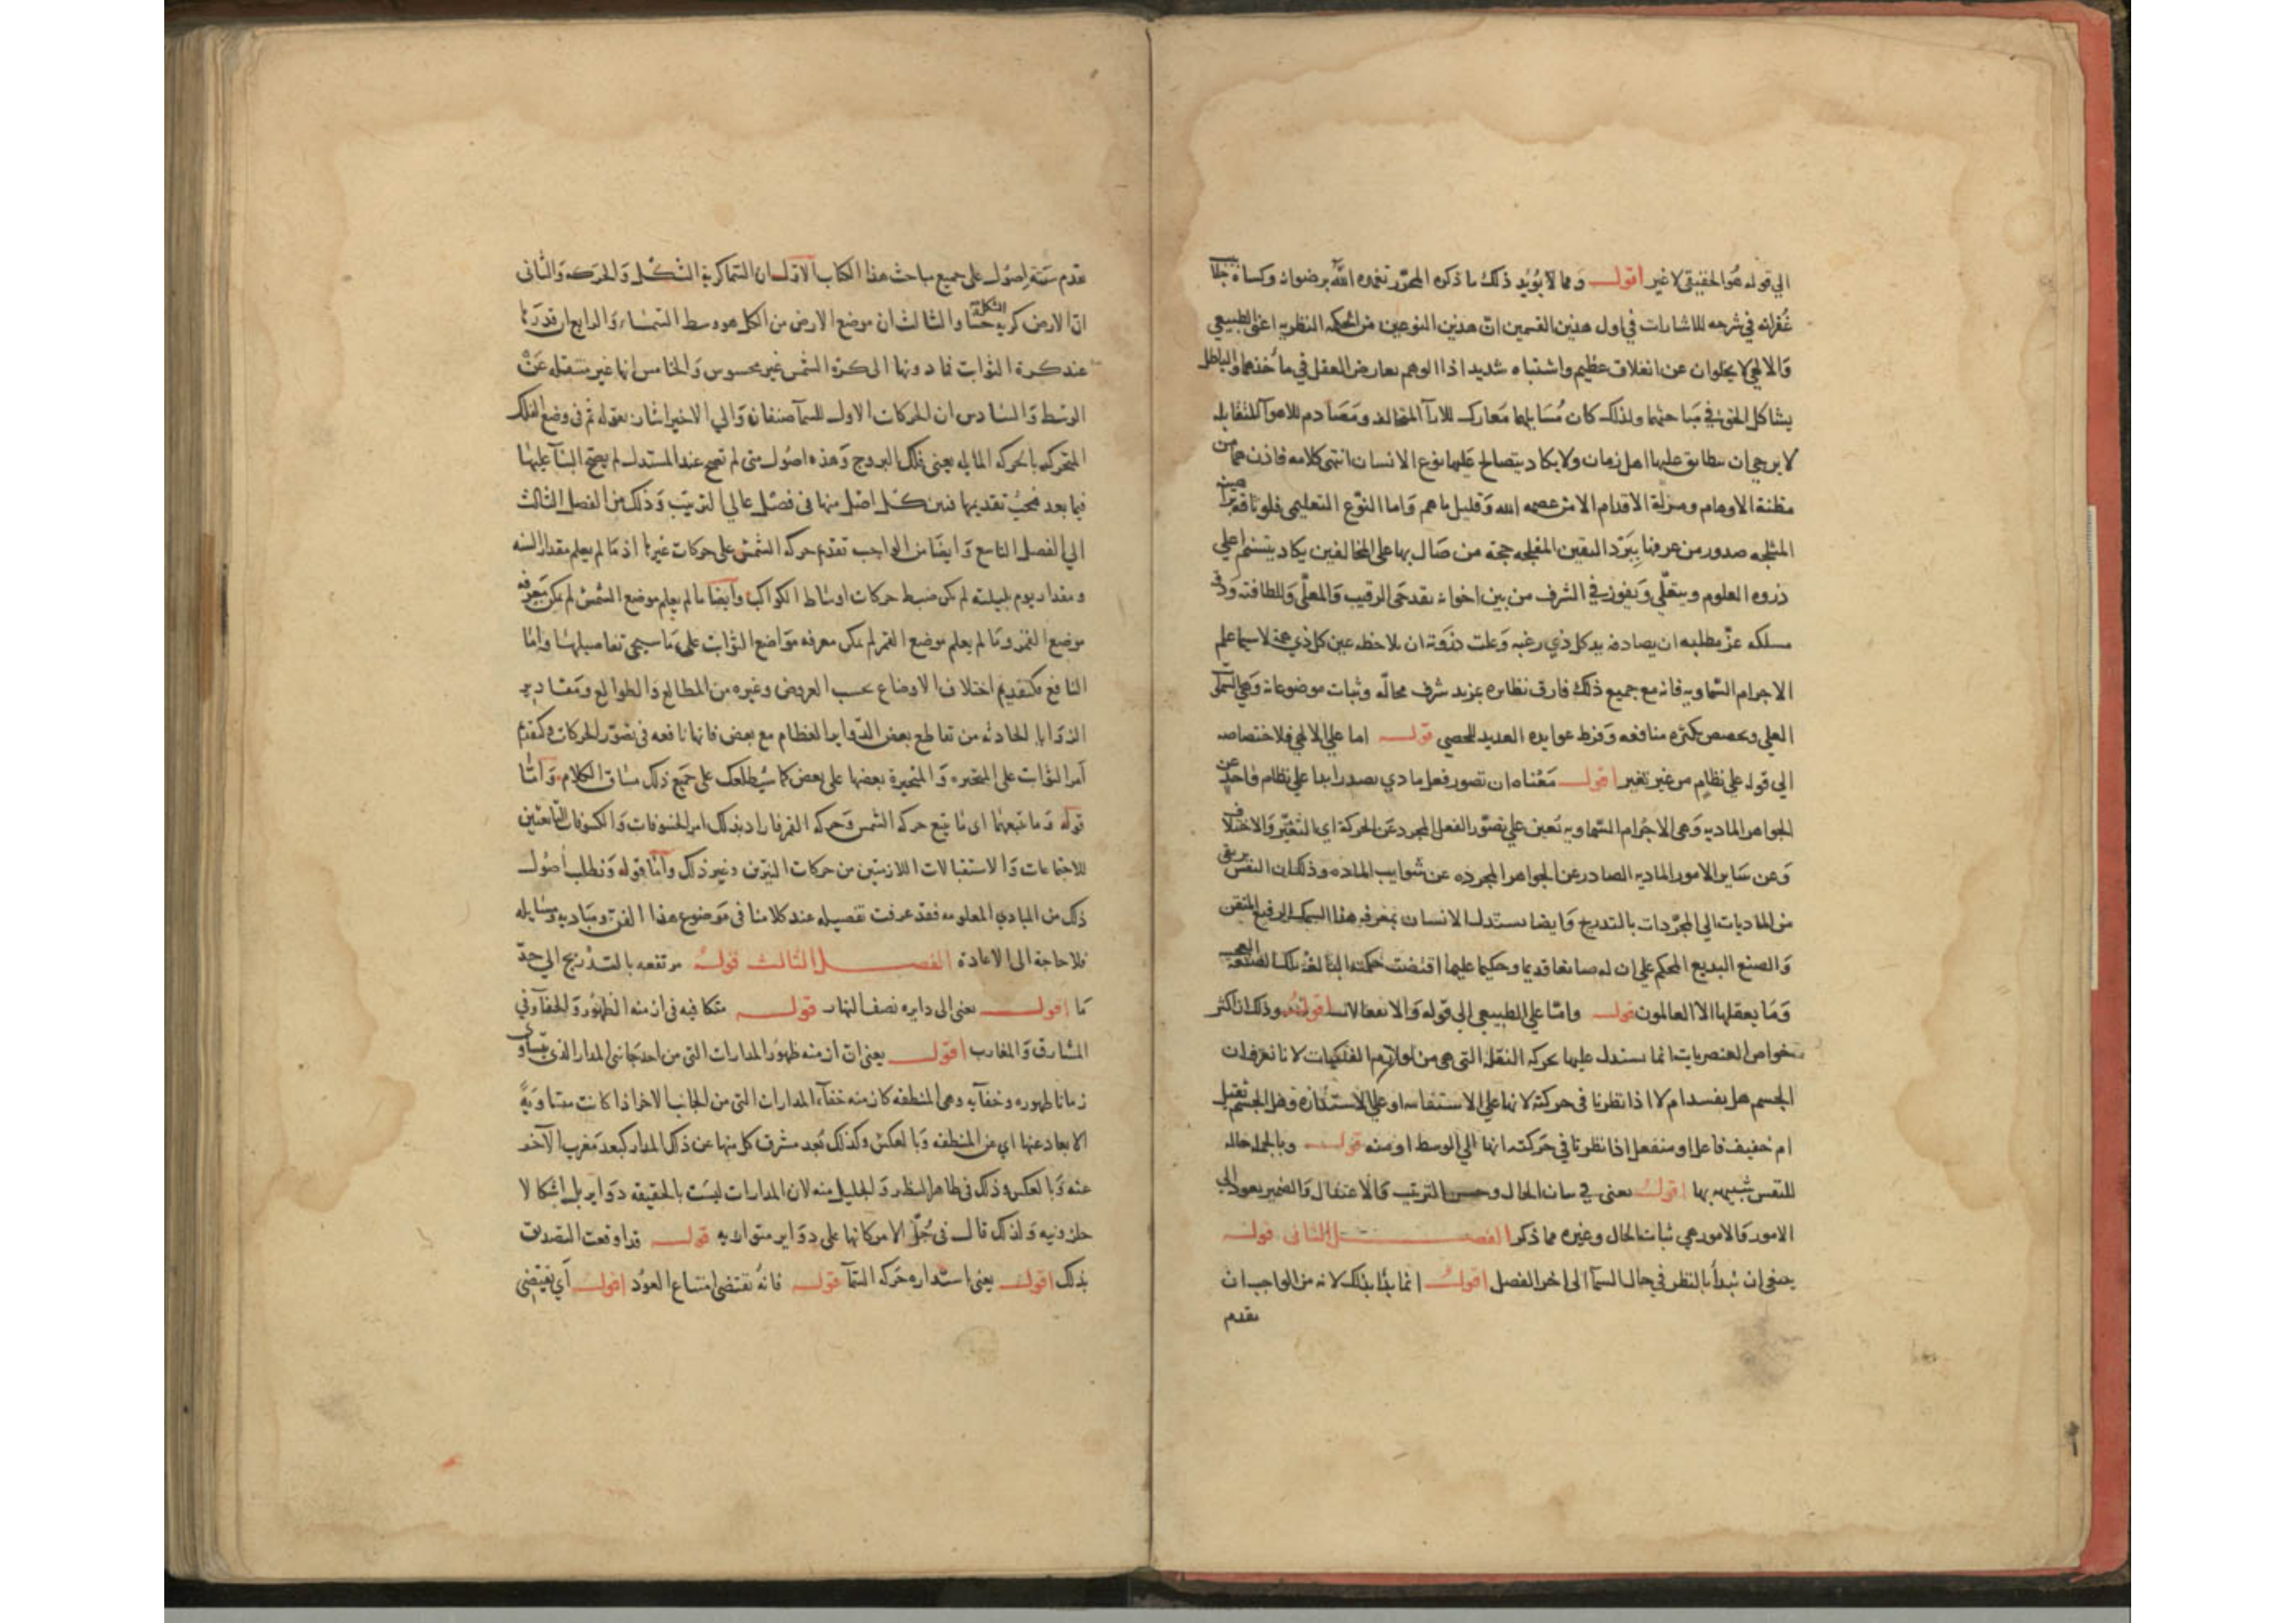 الي قوله هو الحقيقي لا غير اقول ومما لا يؤيد ذلك ما ذكره المحرر تغمده الله برضوانه وكساه جلباب
غفرانه في شرحه للاشارات في اول هذين القسمين ان هذين النوعين من الحكمه النظريه اعني الطبيعي
والالهي لا يخلوان عن انغلاق عظيم واشتباه شديد اذ الوهم يعارض العقل في مأخذهما والباطل
يشاكل الحق في مباحثهما ولذلك كان مسايلهما معارك للارآ المتخالفه ومصادم للاهوآ المتقابله
لا يرجي ان يتطابق عليها اهل زمان ولا يكاد يتصالح عليها نوع الانسان انتهي كلامه فاذن هما من
مظنة الاوهام ومزلة الاقدام الا من عصمه الله وقليل ما هم واما النوع التعليمي فلوثاقة براهينه
المثلجه صدور من عرفها ببرد اليقين المفلجه حجة من صال بها علي المخالفين يكاد يتسنم اعلي
ذروه العلوم ويتعلي ويفوز في الشرف من بين اخواته بقدحي الرقيب والمعلي وللطافته ودقة
مسلكه عز مطلبه ان يصادفه يد كل ذي رغبه وعلت ذروته ان يلاحظه عين كل ذي لا سيما علم
الاجرام السماويه فانه مع جميع ذلك فارق نظايره بمزيد شرف محاله وثبات موضوعاته وهي
العلي وتخصص بكثره منافعه وفرط عوايده العديد الحصي قوله اما علي الالهي فلاختصاصه
الي قوله علي نظام من غير تغير اقول معناه ان تصور فعل مادي يصدر ابدا علي نظام واحد عن
الجواهر الماديه وهي الاجرام السماويه تعين علي تصور الفعل المجرد عن الحركة اي التغير والاختلاف
وعن ساير الامور الماديه الصادر عن الجواهر المجرده عن شوايب الماده وذلك ان النفس يرتقي
من الماديات الي المجردات بالتدريج وايضا يستدل الانسان بمعرفه هذا السمك الرفيع المتقن
والصنع البديع المحكم علي ان له صانعا قديما وحكيما عليما اقتضت حكمته البالغة تلك الصنعة
وما يعقلها الا العالمون قوله واما علي الطبيعي الي قوله والانفعالات اقول وذلك ان اكثر
خواص العنصريات انما يستدل عليها بحركه النقلة التي هي من لوازم الفلكيات لانا نعرف ان
الجسم هل يفسد ام لا اذا نظرنا في حركته لانها علي الاستقامه او علي الاستداره وهل الجسم ثقيل
ام خفيف فاعل او منفعل اذا نظرنا في حركته انها الي الوسط او منه قوله وبالجمله حاله
للنفس شبيهه بها اقول يعني في ثبات الحال وحسن الترتيب والاعتدال والضمير يعود الي
الامور والامور هي ثبات الحال وغيره مما ذكر الفصل الثاني قوله
ينبغي ان نبدأ بالنظر في حال السمآ الي اخر الفصل اقول انما بدأ بذلك لانه من الواجب ان
يقدم
يقدم ستة اصول علي جميع مباحث هذا الكتاب الاول ان السما كرية الشكل والحركه والثاني
ان الارض كرية الشكل حسا والثالث ان موضع الارض من الكل هو وسط السماء والرابع ان قدرها
عند كرة الثوابت فما دونها الي كرة الشمس غير محسوس والخامس انها غير منتقله عن
الوسط والسادس ان الحركات الاول للسمآ صنفان والي الاخير اشار بقوله ثم في وضع الفلك
المتحرك بالحركه المايله يعني فلك البروج وهذه اصول متي لم تصح عند المستدل لم يصح البنآ عليها
فيما بعد فيجب تقديمها فبين كل اصل منها في فصل علي الترتيب وذلك من الفصل الثالث
الي الفصل التاسع وايضا من الواجب تقديم حركه الشمس علي حركات غيرها اذ ما لم يعلم مقدار السنه
ومقدار يوم بليلته لم يمكن ضبط حركات اوساط الكواكب وايضا ما لم يعلم موضع الشمس لم يمكن معرفه
موضع القمر وما لم يعلم موضع القمر لم يمكن معرفه مواضع الثوابت علي ما سيجي تفاصيلها واما
النافع فكتقديم اختلاف الاوضاع بحسب العروض وغيره من المطالع والطوالع ومقادير
الزوايا الحادثه من تقاطع بعض الدواير العظام مع بعض فانها نافعه في تصور الحركات وكتقديم
امر الثوابت علي المتحيره والمتحيرة بعضها علي بعض كما سيطلعك علي جميع ذلك مساق الكلام واما
قوله وما يتبعهما اي ما يتبع حركه الشمس وحركه القمر فاراد بذلك امر الخسوفات والكسوفات التابعتين
للاجتماعات والاستقبالات اللازمتين من حركات النيرين وغير ذلك واما قوله ونطلب اصول
ذلك من المبادي المعلومه فقد عرفت تفصيله عند كلامنا في موضوع هذا الفن ومباديه ومسايله
فلا حاجة الي الاعادة الفصل الثالث قوله مرتفعه بالتدريج الي حد
ما اقول يعني الي دايره نصف النهار قوله متكافيه في ازمنه الظهور والخفآ وفي
المشارق والمغارب اقول يعني ان ازمنه ظهور المدارات التي من احد جانبي المدار الذي يتساوي
زمانا ظهوره وخفآيه وهي المنطقه كازمنه خفآء المدارات التي من الجانب الاخر اذا كانت متساوية
الابعاد عنها اي عن المنطقه وبالعكس وكذلك بعد مشرق كل منها عن ذلك المدار كبعد مغرب الآخر
عنه وبالعكس وذلك في ظاهر النظر والجليل منه لان المدارات ليست بالحقيقه دواير بل اشكالا
حلزونيه ولذلك قال في جل الامر كانها علي دواير متوازيه قوله قد اوقعت التصديق
بذلك اقول يعني استداره حركه السمآ قوله فانه يقتضي امتناع العود اقول اي يقتضي